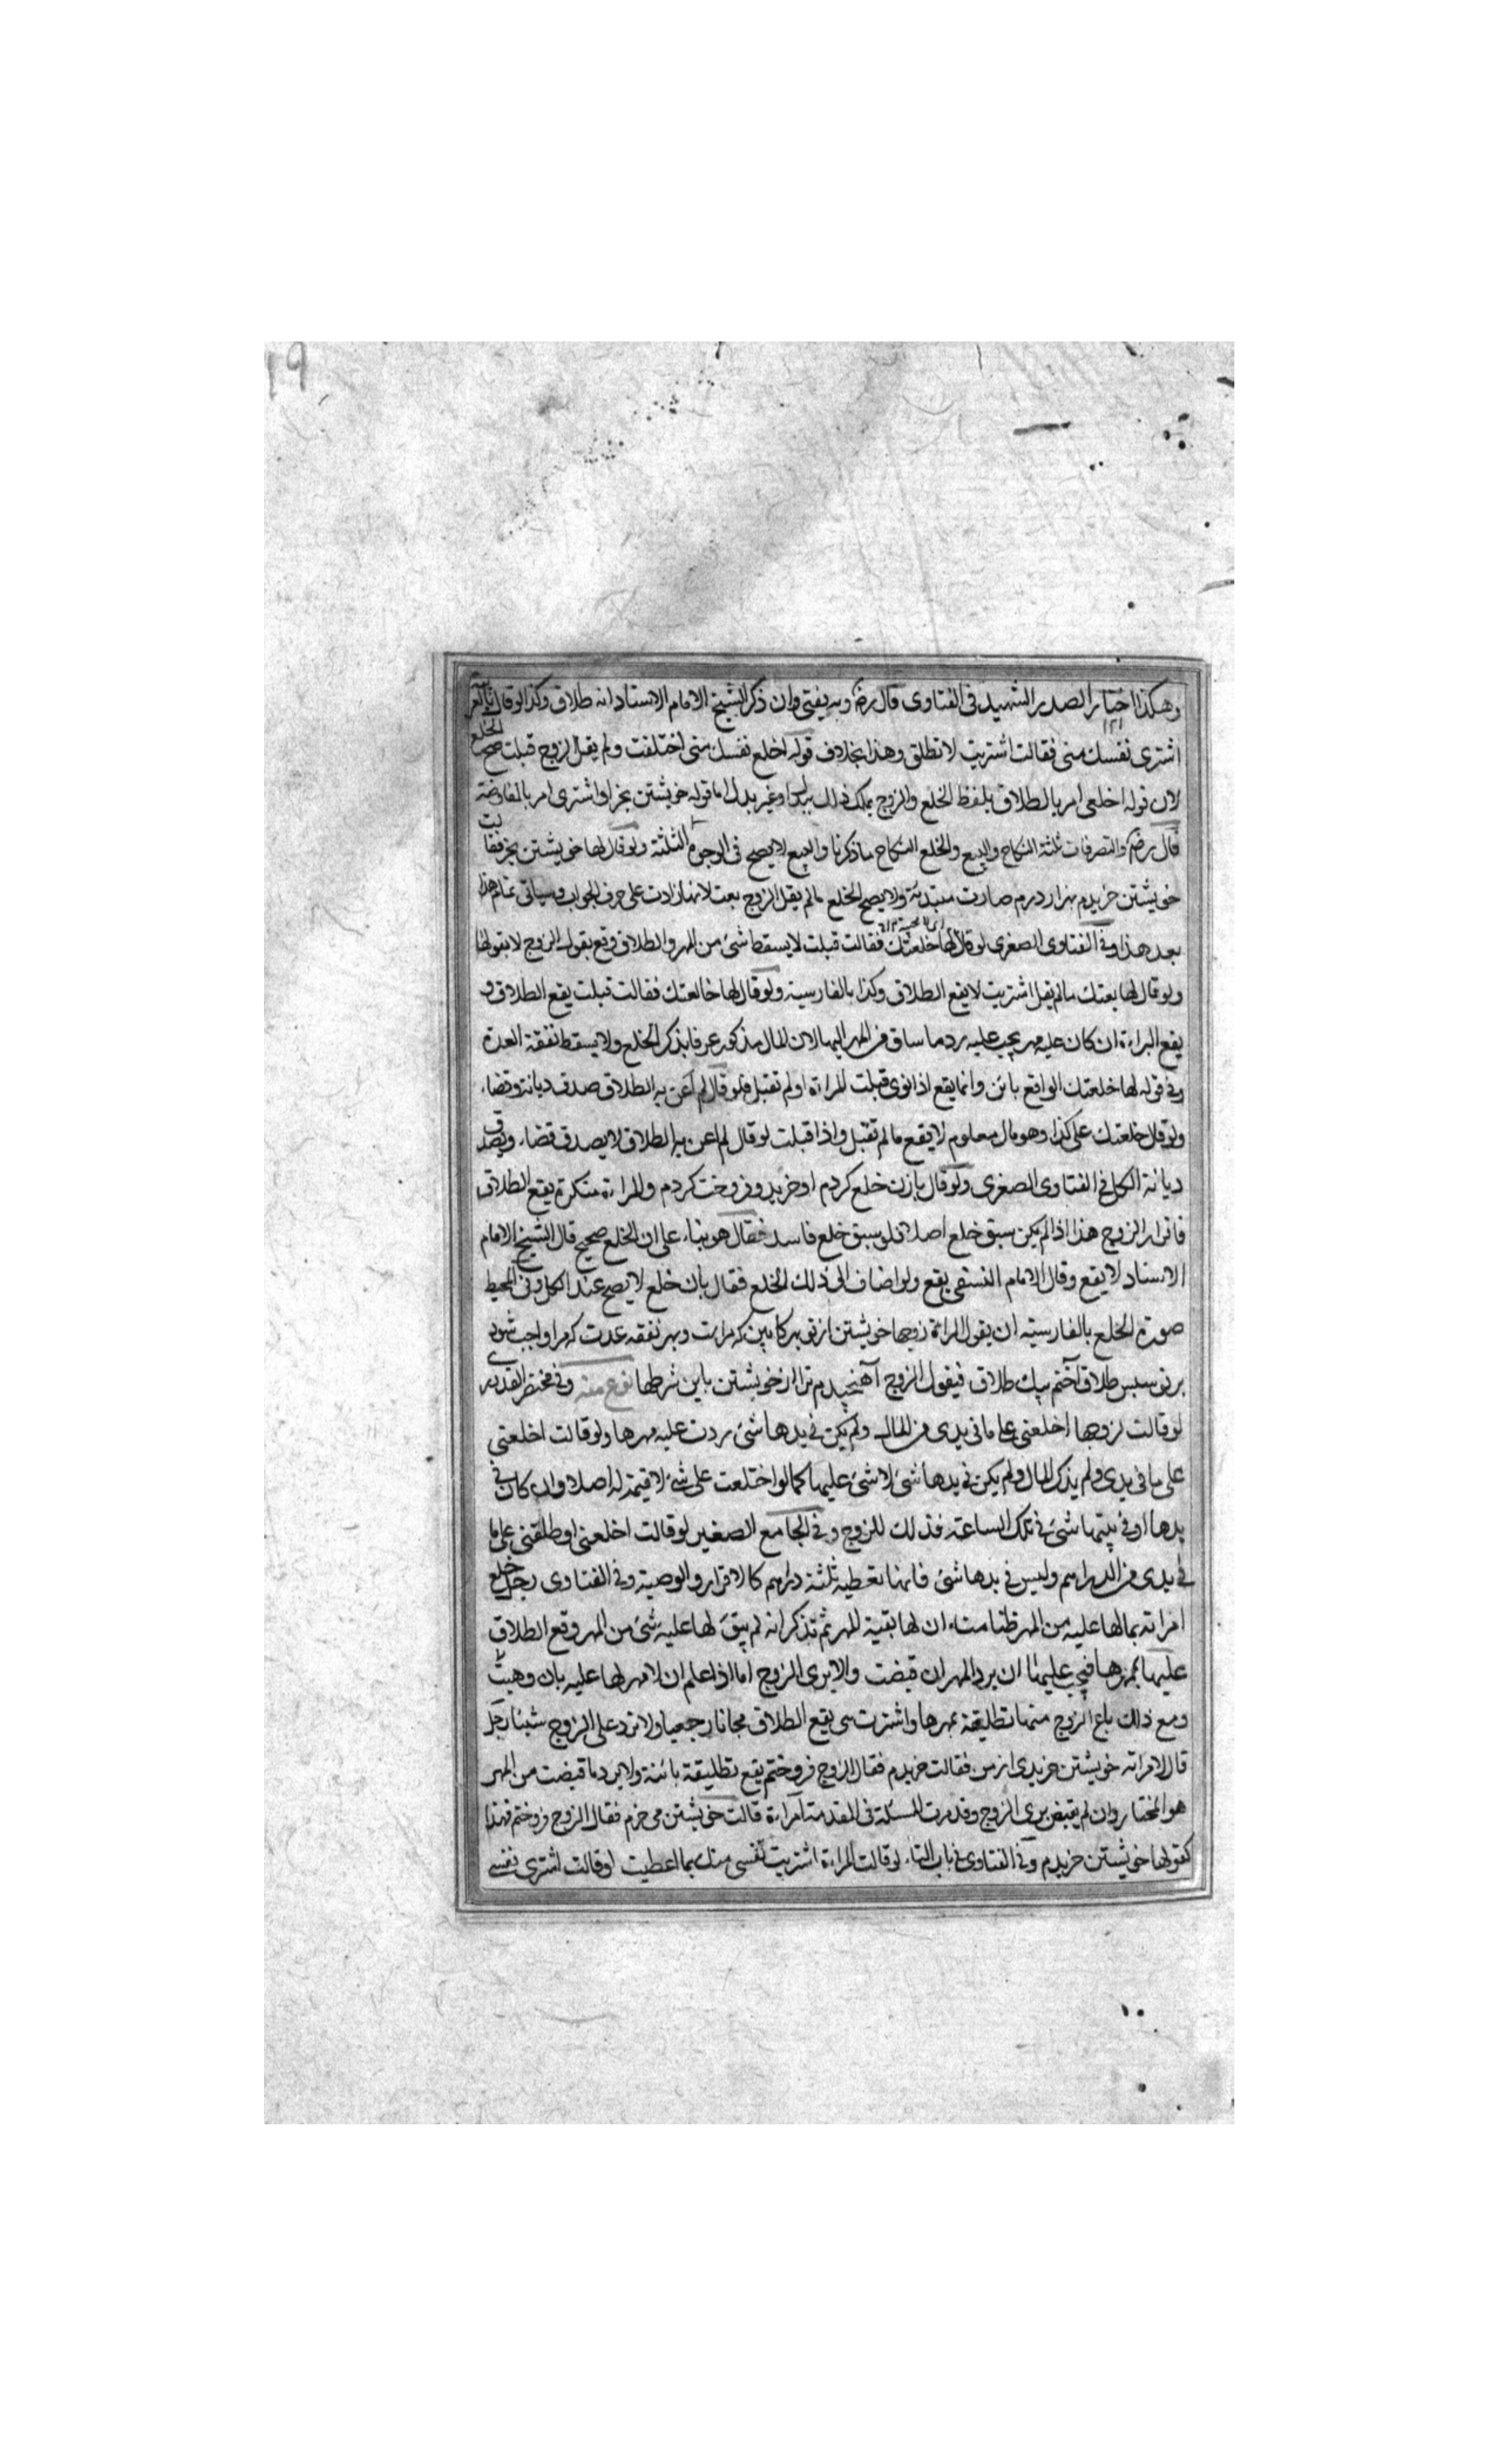 وهكذا اختيار الصدر الشهيد في الفتاوى قال رضه وبه يفتى وان ذكر الشيخ الامام الاستاد انه طلاق وكذا لو قال
اشترى نفسك منى فقالت اشتريت لا تطلق وهذا بخلاف قوله اخلع نفسك منى اختلعت ولم يقل الزوج قبلت صح الخلع
لان قوله اخلعى امر بالطلاق بلفظ الخلع والزوج يملك ذلك ببدل او غير بدل اما قوله خويشتن بخر او اشترى امر بالمفاوضة
قال رضه والتصرفات ثلثة النكاح والبيع والخلع النكاح ما ذكرنا والبيع لا يصح فى الوجوه الثلثة ولو قال لها خويشتن بخر فقالت
خويشتن خريدم بهزار درم صارت مبتدئة ولا يصح الخلع مالم يقل الزوج بعت لانها زادت على حرف الجواب وسياتى تمام هذا
بعد هذا وفى الفتاوى الصغرى لو قال لها خلعتك فقالت قبلت لا يسقط شئ من المهر والطلاق وقع بقول الزوج لا بقولها
ولو قال لها بعتك مالم يقل اشتريت لا يقع الطلاق وكذا بالفارسية ولو قال لها خالعتك فقالت قبلت يقع الطلاق و
يقع البراءة ان كان عليه مهر يجب عليه رد ما ساق من المهر اليها لان المال مذكور عرفا بذكر الخلع ولا يسقط نفقة العدة
وفى قوله لها خلعتك الواقع بائن وانما يقع اذا نوى قبلت المراة او لم تقبل فلو قال لم اعن به الطلاق صدق ديانة وقضاء
ولو قال خلعتك على كذا وهو مال معلوم لا يقع مالم تقبل واذا قبلت لو قال لم اعن به الطلاق لا يصدق قضاء ويصدق
ديانة الكل فى الفتاوى الصغرى ولو قال بازن خلع كردم او خريد وفروخت كردم والمراءة منكرة يقع الطلاق
فاقرار الزوج هذا اذا لم يكن سبق خلع اصلا فلو سبق خلع فاسد فقال هو بناء على ان الخلع صحيح قال الشيخ الامام
الاستاد لا يقع وقال الامام النسفى يقع ولو اضاف الى ذلك الخلع فقال بان خلع لا يصح عند الكل وفى المحيط
صورة الخلع بالفارسية ان يقول المراة زوجها خويشتن از تو بركابين كه مراست وبهر نفقه عدت كه مرا واجب شود
بر تو سپس طلاق آختم بيك طلاق فيقول الزوج آهنجيدم ترا از خويشتن باين شرطها نوع منه وفى مختصر القدورى
لو قالت لزوجها اخلعنى على ما فى يدى من المال ولم يكن فى يدها شئ ردت عليه مهرها ولو قالت اخلعنى
على ما فى يدى ولم يذكر المال ولم يكن فى يدها شئ لا شئ عليها كما لو اختلعت على شئ لا قيمة له اصلا وان كان فى
يدها او فى بيتها شئ فى تلك الساعة فذلك للزوج وفى الجامع الصغير لو قالت اخلعنى او طلقنى على ما
فى يدى من الدراهم وليس فى يدها شئ فانها تعطيه ثلثة دراهم كالاقرار والوصية وفى الفتاوى رجل خلع
امراته بمالها عليه من المهر ظنا منه ان لها بقية المهر ثم تذكر انه لم يبق لها عليه شئ من المهر وقع الطلاق
عليها بمهرها فيجب عليها ان يرد المهر ان قبضت والا برى الزوج اما اذا علم ان لا مهر لها عليه بان وهبت
ومع ذلك باع الزوج منها تطليقة بمهرها واشترت هى يقع الطلاق مجانا رجعيا ولا ترد على الزوج شيئا رجل
قال لامراته خويشتن خريدى از من فقالت خريدم فقال الزوج فروختم يقع تطليقة بائنة ولا يرد ما قبضت من المهر
هو المختار وان لم يقبض برى الزوج وقد مرت المسئلة فى المقدمة امراءة قالت خويشتن مى خرم فقال الزوج فروختم فهذا
كقولها خويشتن خريدم وفى الفتاوى فى باب التاء لو قالت المراءة اشتريت نفسى منك بما اعطيت او قالت اشترى نفسى